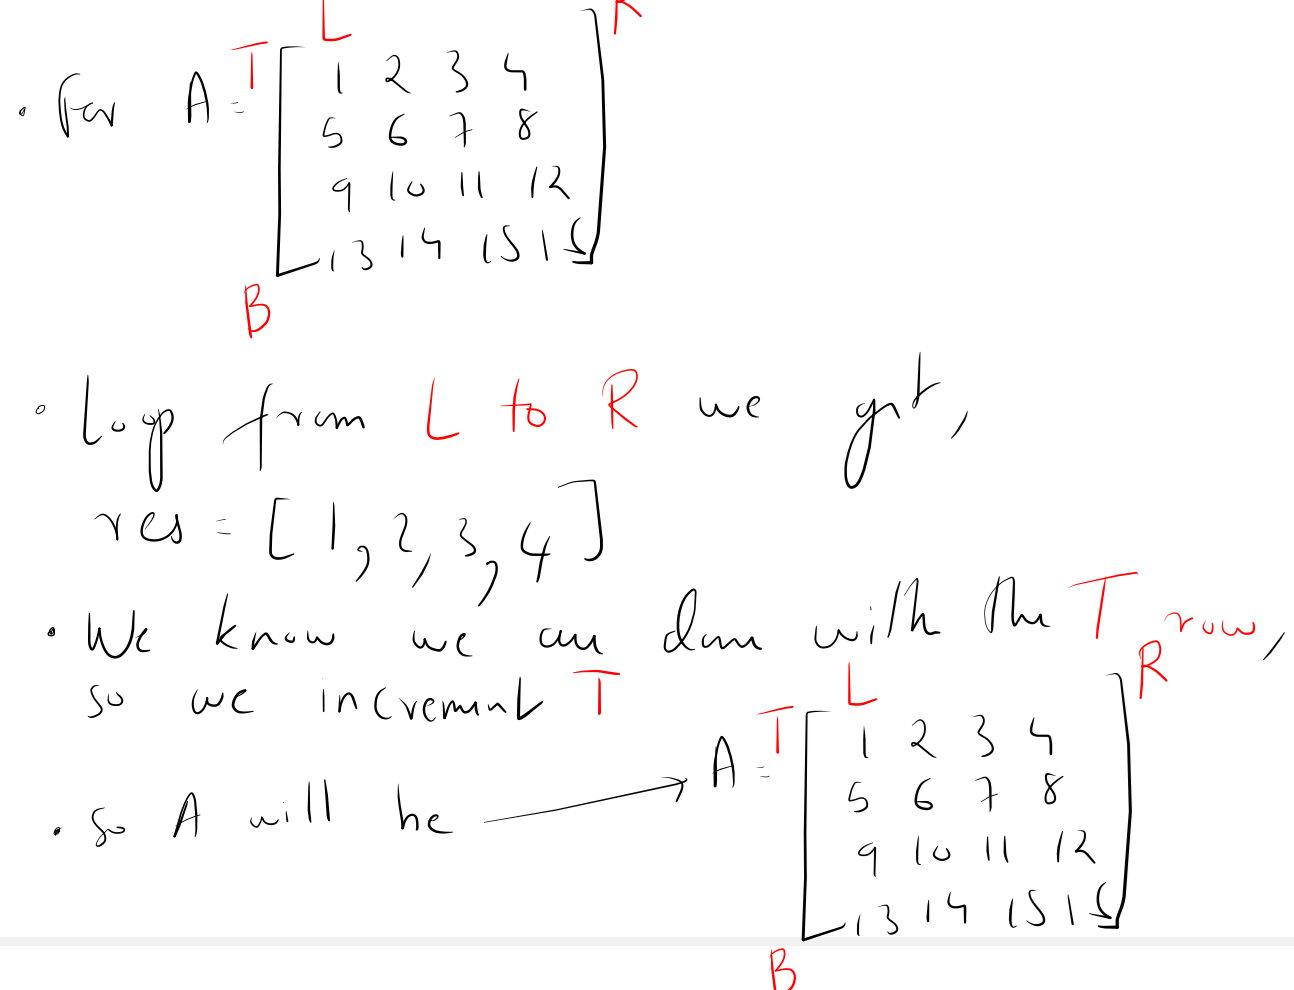 L R
• For A = T [ 1 2 3 4
5 6 7 8
9 10 11 12
13 14 15 16 ]
B
• Loop from L to R we get,
res = [1, 2, 3, 4]
• We know we are done with the T row,
so we increment T
L R
• So A will be → A = T [ 1 2 3 4
5 6 7 8
9 10 11 12
13 14 15 16 ]
B